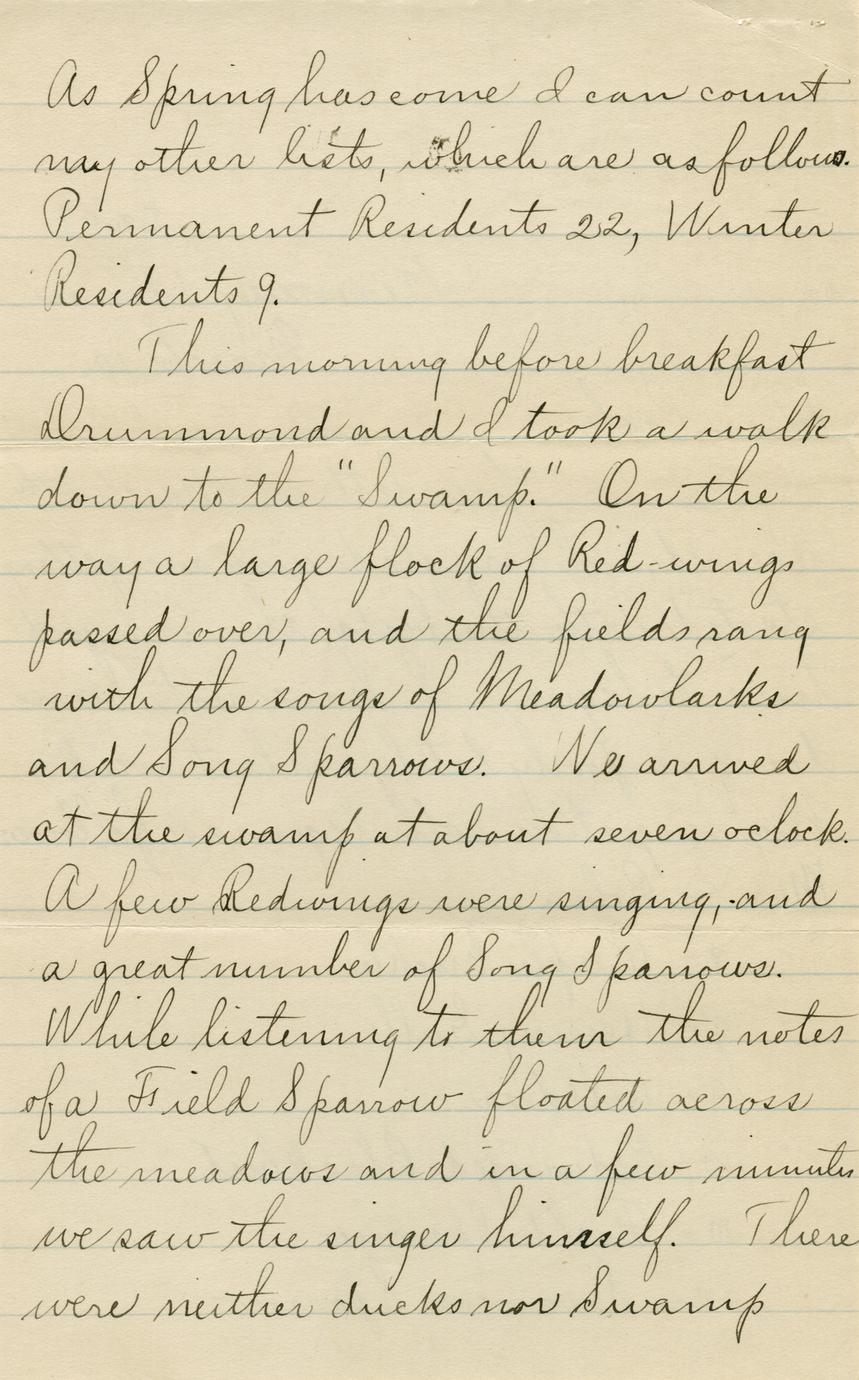 As Spring has come I can count
my other lists, which are as follows.
Permanent Residents 22, Winter
Residents 9.
This morning before breakfast
Drummond and I took a walk
down to the "Swamp." On the
way a large flock of Red-wings
passed over, and the fields rang
with the songs of Meadowlarks
and Song Sparrows. We arrived
at the swamp at about seven oclock.
A few Redwings were singing, and
a great number of Song Sparrows.
While listening to them the notes
of a Field Sparrow floated across
the meadows and in a few minutes
we saw the singer himself. There
were neither ducks nor Swamp